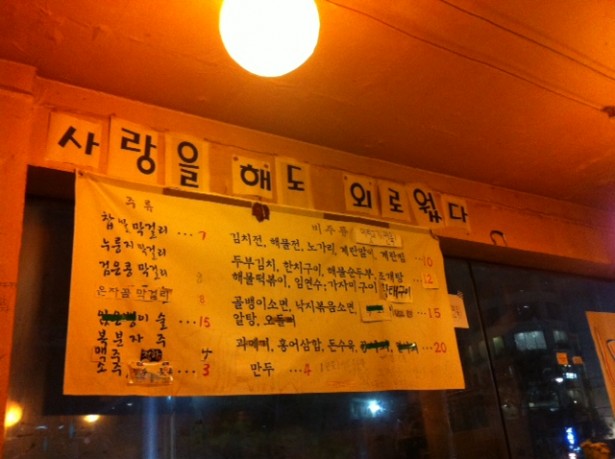 사랑을 해도 외로웁다
주류
찹쌀막걸리 … 7
누룽지막걸리
검은콩 막걸리 8
은자골 막걸리 8
술 …15
복분자주
맥주 4
소주 …3
비주류
김치전, 해물전, 노가리, 계란말이, 계란탕 …10
두부김치, 한치구이, 해물순두부, 조개탕 …12
해물떡볶이, 임연수, 가자미구이, 황태구이
골뱅이소면, 낙지볶음소면, …15
알탕,
과메기, 홍어삼합, 돈수육, …20
만두 …4